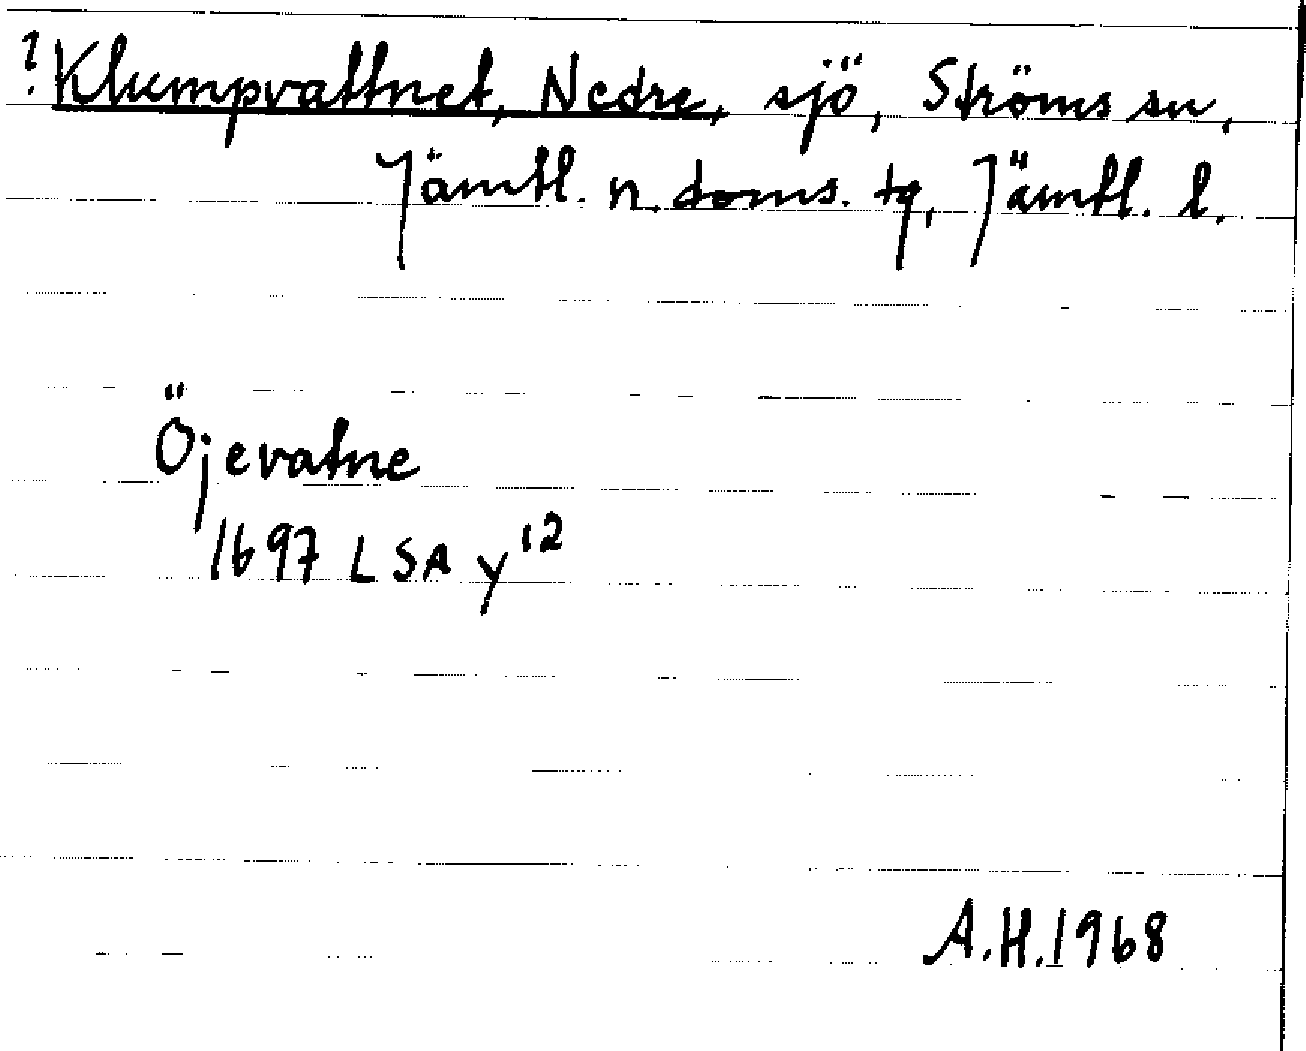 ? Klumpvattnet, Nedre, sjö, Ströms sn,
Jämtl. n. doms. tg, Jämtl. l.
Öjevatne
1697 LSA y¹²
A.H. 1968